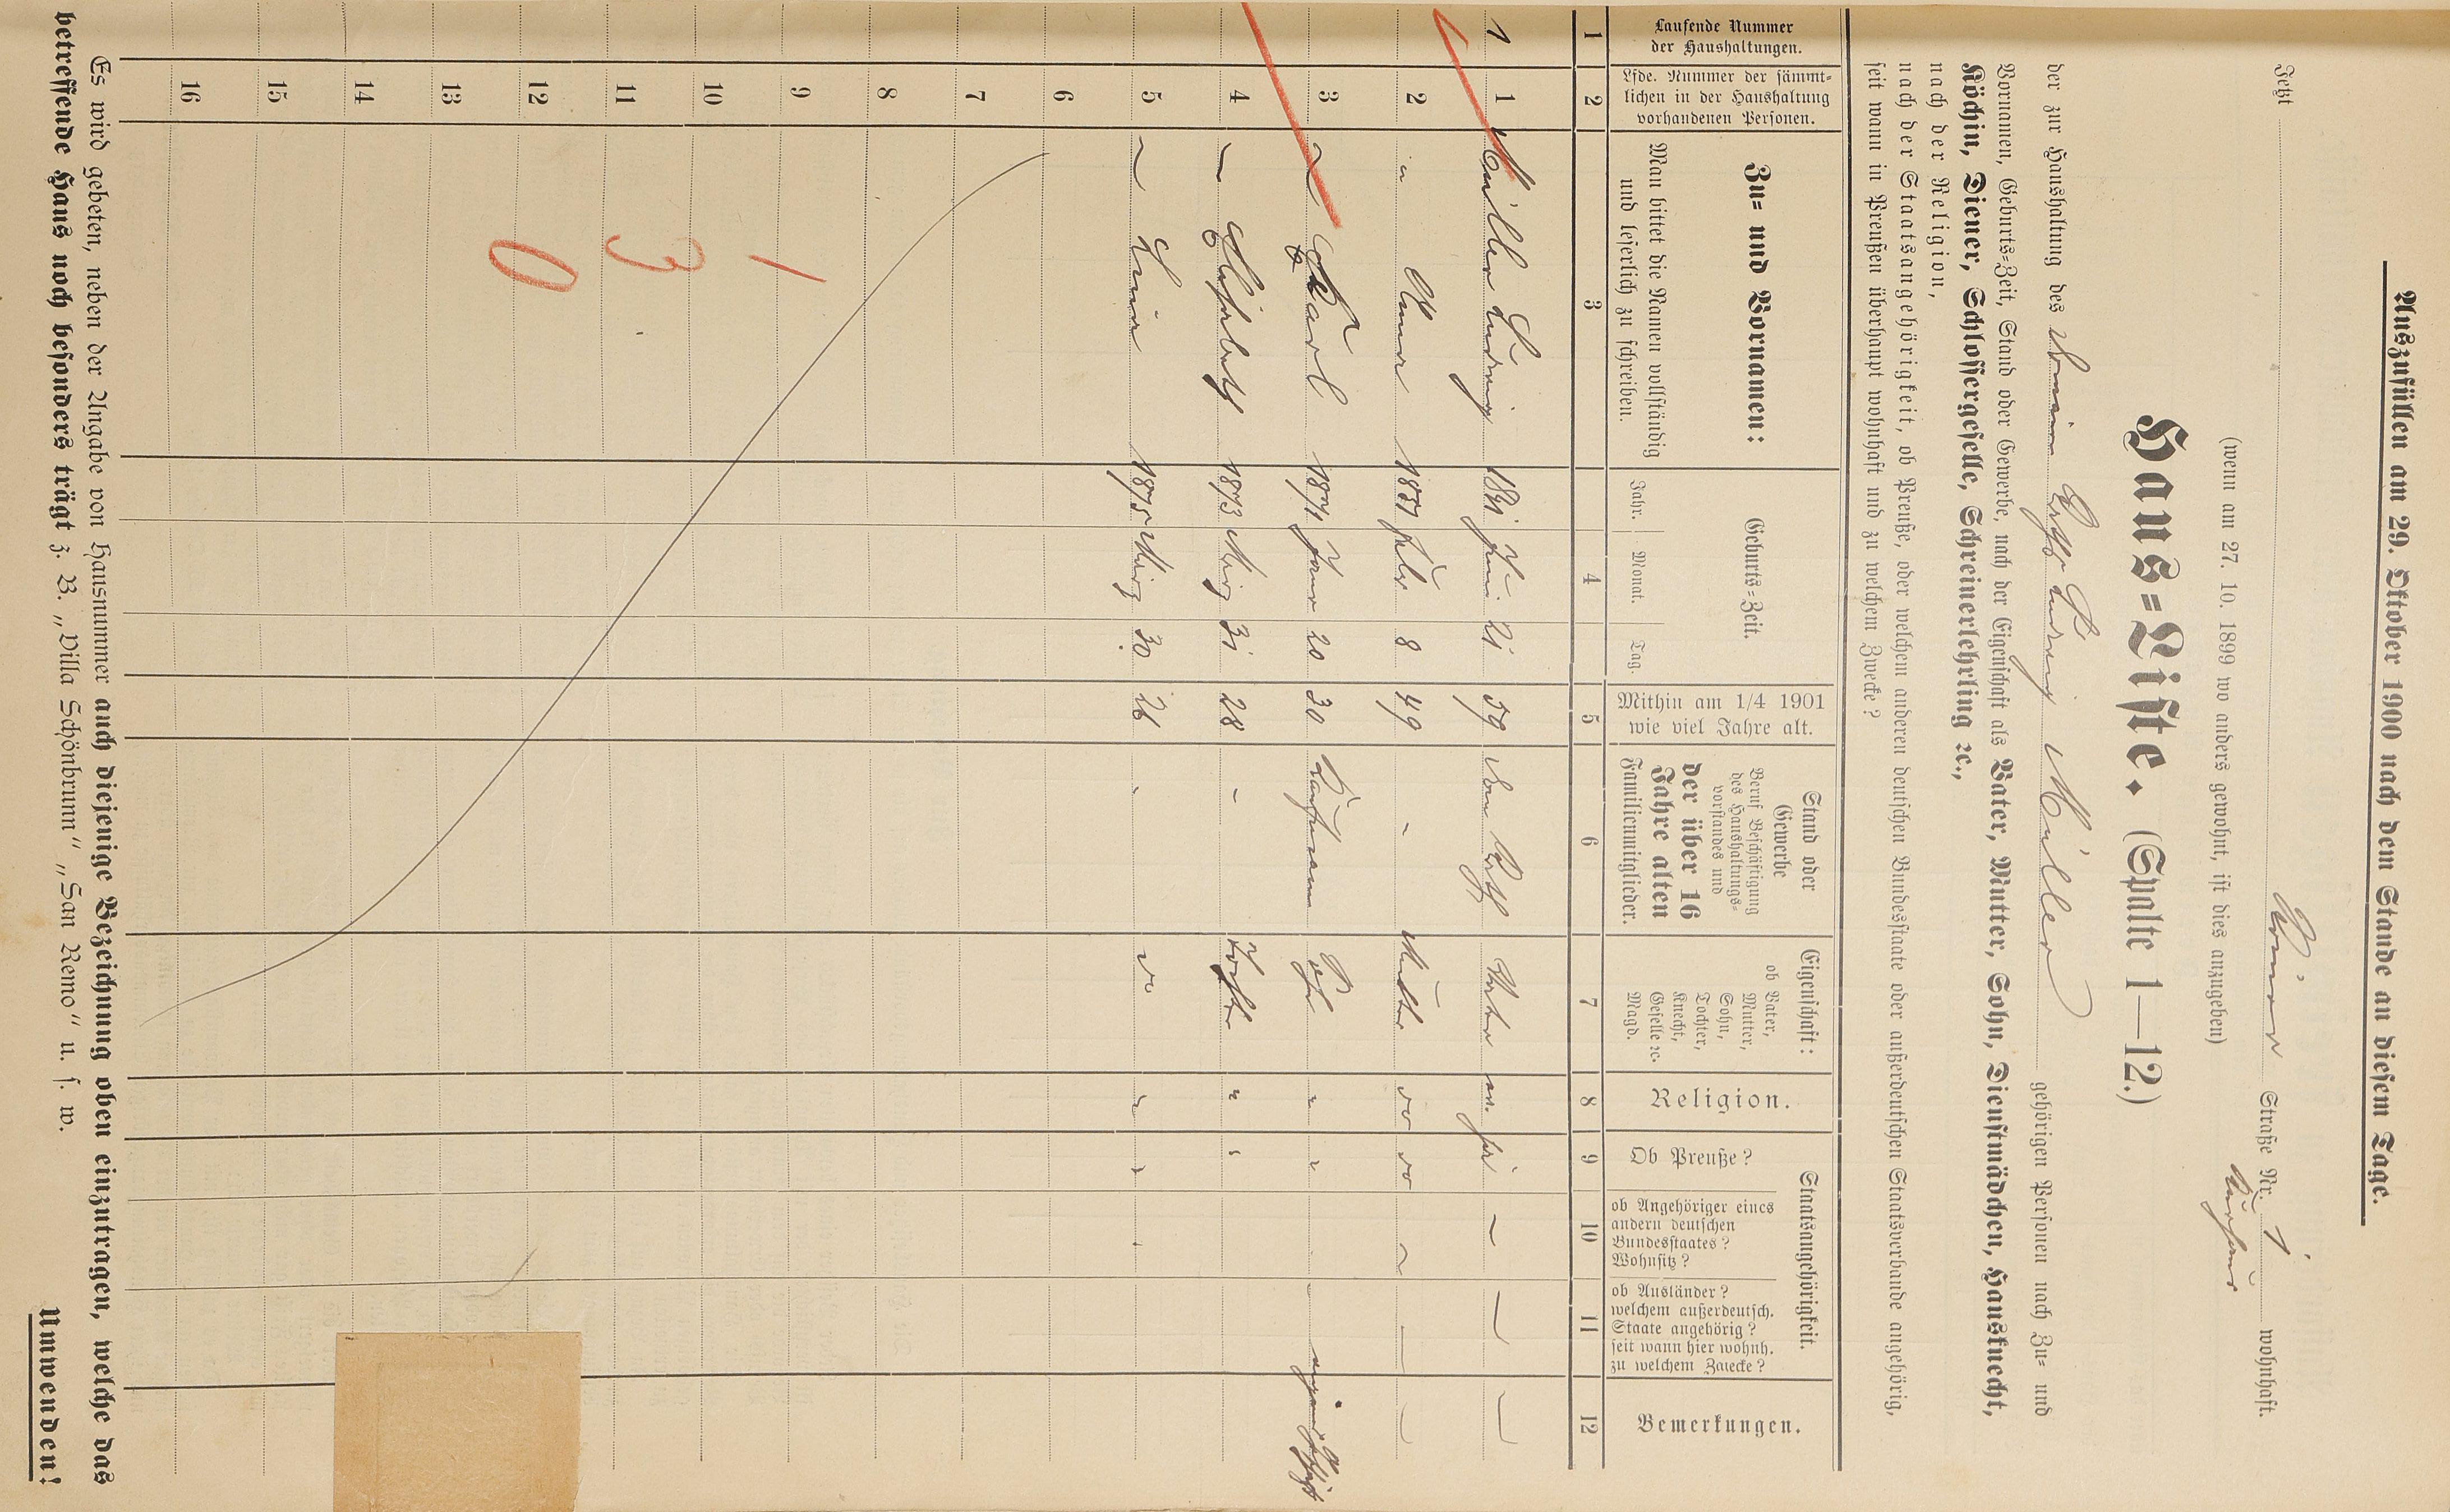 Auszufüllen am 29. Oktober 1900 nach dem Stande an diesem Tage.
Jetzt Römer Straße Nr. 1 wohnhaft.
Kurhaus
(wenn am 27. 10. 1899 wo anders gewohnt, ist dies anzugeben)
Haus-Liste. (Spalte 1—12.)
der zur Haushaltung des Ludwig Müller gehörigen Personen nach Zu- und
Vornamen, Geburts-Zeit, Stand oder Gewerbe, nach der Eigenschaft als Vater, Mutter, Sohn, Dienstmädchen, Hausknecht,
Köchin, Diener, Schlossergeselle, Schreinerlehrling ꝛc.,
nach der Religion,
nach der Staatsangehörigkeit, ob Preuße, oder welchem anderen deutschen Bundesstaate oder außerdeutschen Staatsverbande angehörig,
seit wann in Preußen überhaupt wohnhaft und zu welchem Zwecke?
Laufende Nummer
der Haushaltungen.
Lfde. Nummer der sämmt-
lichen in der Haushaltung
vorhandenen Personen.
Zu- und Vornamen:
Man bittet die Namen vollständig
und leserlich zu schreiben.
Geburts-Zeit.
Jahr. Monat. Tag.
Mithin am 1/4 1901
wie viel Jahre alt.
Stand oder
Gewerbe
Beruf Beschäftigung
des Haushaltungs-
vorstandes und
der über 16
Jahre alten
Familienmitglieder.
Eigenschaft:
ob Vater,
Mutter,
Sohn,
Tochter,
Knecht,
Geselle ꝛc.
Magd.
Religion.
Staatsangehörigkeit.
Ob Preuße?
ob Angehöriger eines
andern deutschen
Bundesstaates?
Wohnsitz?
ob Ausländer?
welchem außerdeutsch.
Staate angehörig?
seit wann hier wohnh.
zu welchem Zwecke?
Bemerkungen.
1 2 3 4 5 6 7 8 9 10 11 12
1 1 Müller Ludwig 1841 Juni 21 59 Vater ev. ja — — —
2 " Anna 1851 Febr 8 49 - Mutter do do — — —
3 ~ Karl 1871 Janr 20 30 Kaufmann Sohn " "
4 ~ Elisabeth 1873 März 31 28 - Tochter " "
5 ~ Lina 1875 März 30. 26 - do " "
6
7
8
9
10
11
12
13
14
15
16
1
3
0
Es wird gebeten, neben der Angabe von Hausnummer auch diejenige Bezeichnung oben einzutragen, welche das
betreffende Haus noch besonders trägt z. B. „Villa Schönbrunn“ „San Remo“ u. s. w.
Umwenden!